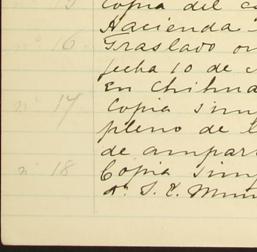 15 Copia del c
Hacienda
nº 16 Traslado or
fecha 10 de
En Chihua
nº 17 Copia sim
pleno de l
de ampar
nº 18 Copia simp